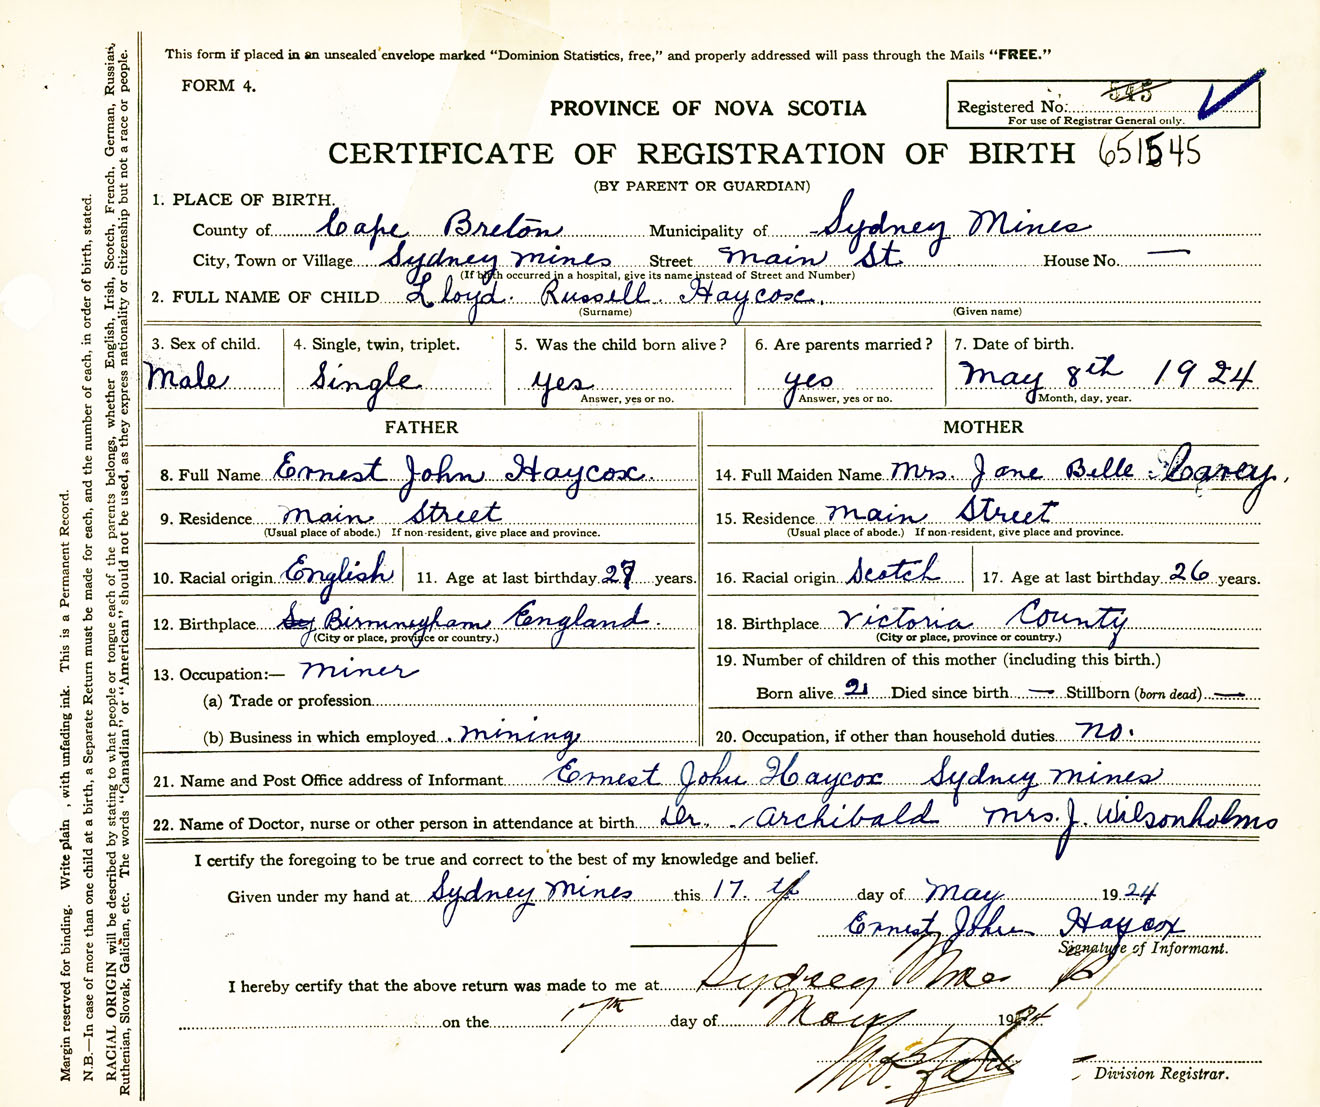 This form if placed in an unsealed envelope marked "Dominion Statistics, free," and properly addressed will pass through the Mails "FREE."
FORM 4.
PROVINCE OF NOVA SCOTIA
Registered No: 545
For use of Registrar General only.
CERTIFICATE OF REGISTRATION OF BIRTH 651545
(BY PARENT OR GUARDIAN)
1. PLACE OF BIRTH.
County of Cape Breton Municipality of Sydney Mines
City, Town or Village Sydney mines Street Main St. House No. —
(If birth occurred in a hospital, give its name instead of Street and Number)
2. FULL NAME OF CHILD Lloyd. Russell Haycox.
(Surname) (Given name)
3. Sex of child. 4. Single, twin, triplet. 5. Was the child born alive? 6. Are parents married? 7. Date of birth.
Male Single yes yes May 8th 1924
Answer, yes or no. Answer, yes or no. Month, day, year.
FATHER MOTHER
8. Full Name Ernest John Haycox. 14. Full Maiden Name Mrs. Jane Belle
9. Residence Main Street 15. Residence Main Street
(Usual place of abode.) If non-resident, give place and province. (Usual place of abode.) If non-resident, give place and province.
10. Racial origin English 11. Age at last birthday 27 years. 16. Racial origin Scotch 17. Age at last birthday 26 years.
12. Birthplace Sy Birmingham England. 18. Birthplace Victoria County
(City or place, province or country.) (City or place, province or country.)
13. Occupation:— Miner 19. Number of children of this mother (including this birth.)
(a) Trade or profession Born alive 2 Died since birth — Stillborn (born dead) —
(b) Business in which employed mining 20. Occupation, if other than household duties no.
21. Name and Post Office address of Informant Ernest John Haycox Sydney mines
22. Name of Doctor, nurse or other person in attendance at birth Dr. Archibald Mrs. J. Wilsonholms
I certify the foregoing to be true and correct to the best of my knowledge and belief.
Given under my hand at Sydney Mines this 17.th day of May 1924
Ernest John Haycox
Signature of Informant.
I hereby certify that the above return was made to me at Sydney Mines
on the 17th day of May 1924
Division Registrar.
Margin reserved for binding. Write plain, with unfading ink. This is a Permanent Record.
N.B.—In case of more than one child at a birth, a Separate Return must be made for each, and the number of each, in order of birth, stated.
RACIAL ORIGIN will be described by stating to what people or tongue each of the parents belongs, whether English, Irish, Scotch, French, German, Russian,
Ruthenian, Slovak, Galician, etc. The words "Canadian" or "American" should not be used, as they express nationality or citizenship but not a race or people.